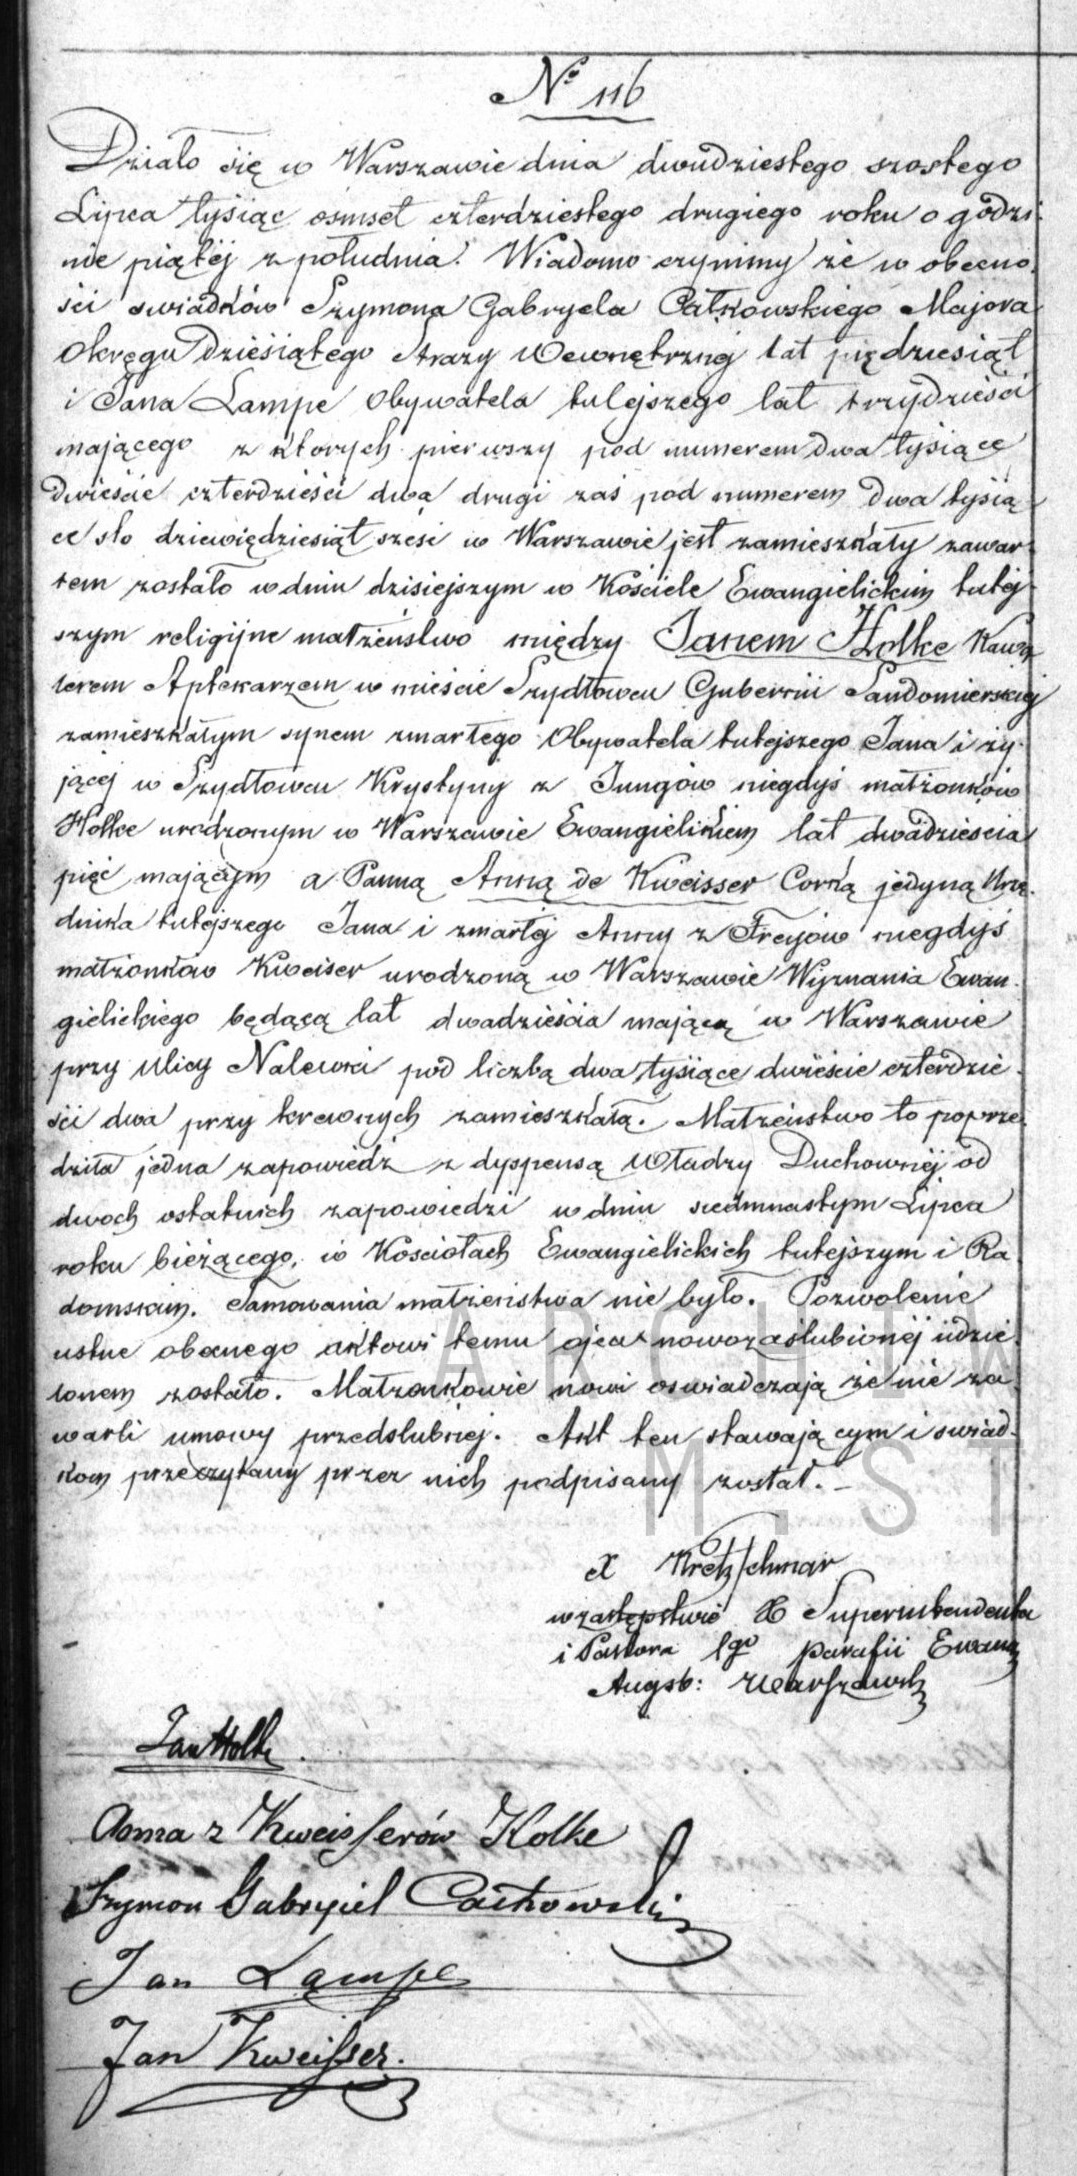 № 116
Działo się w Warszawie dnia dwudziestego szostego
Lipca tysiąc osmset czterdziestego drugiego roku o godzi-
nie piątéj z południa. Wiadomo czynimy że w obecno-
ści swiadków Szymona Gabryela Całkowskiego Majora
Okręgu Dziesiątego Strazy Wewnętrznej lat piędziesiąt
i Jana Lampe Obywatela tutejszego lat trzydzieści
mającego z których pierwszy pod numerem dwa tysiące
dwieście czterdzieści dwa drugi zaś pod numerem dwa tysią-
ce sto dziewiędziesiąt szesc w Warszawie jest zamieszkały zawar-
tem zostało w dniu dzisiejszym w Kościele Ewangielickim tutej-
szym religijne małżeństwo między Janem Holke Kawa-
lerem Aptekarzem w miescie Szydłowcu Gubernii Sandomierskiej
zamieszkałym synem zmarłego Obywatela tutejszego Jana i ży-
jącéj w Szydłowcu Krystyny z Jungów niegdyś małżonków
Holke urodzonym w Warszawie Ewangielikiem lat dwadziescia
pięć mającym a Panną Anną de Kweisser Corką jedyną Urzę-
dnika tutejszego Jana i zmarłéj Anny z Frejow niegdyś
małżonków Kweiser urodzoną w Warszawie Wyznania Ewan-
gielickiego będącą lat dwadzieścia mającą w Warszawie
przy Ulicy Nalewki pod liczbą dwa tysiące dwieście czterdzie-
ści dwa przy krewnych zamieszkałą. Małżeństwo to poprze-
dziła jedna zapowiedź z dyspensą Władzy Duchownéj od
dwoch ostatnich zapowiedzi w dniu siedmnastym Lipca
roku bieżącego, w Kosciołach Ewangielickich tutejszym i Ra-
domskim. Tamowania małżeństwa nie było. Pozwolenie
ustne obecnego aktowi temu ojca nowozaślubionéj udzie-
lonem zostało. Małżonkowie nowi oswiadczają że nie za-
warli umowy przedslubnej. Akt ten stawającym i swiad-
kom przeczytany przez nich podpisany został. –
X Kretzschmar
w zastępstwie X Superintendenta
i Pastora tgo parafii Ewang
Augsb: Warszawsk
Jan Holke
Anna z Kweisserów Holke
Szymon Gabryiel Całkowski
Jan Lampe
Jan Kweisser.
ARCHIW
M.ST